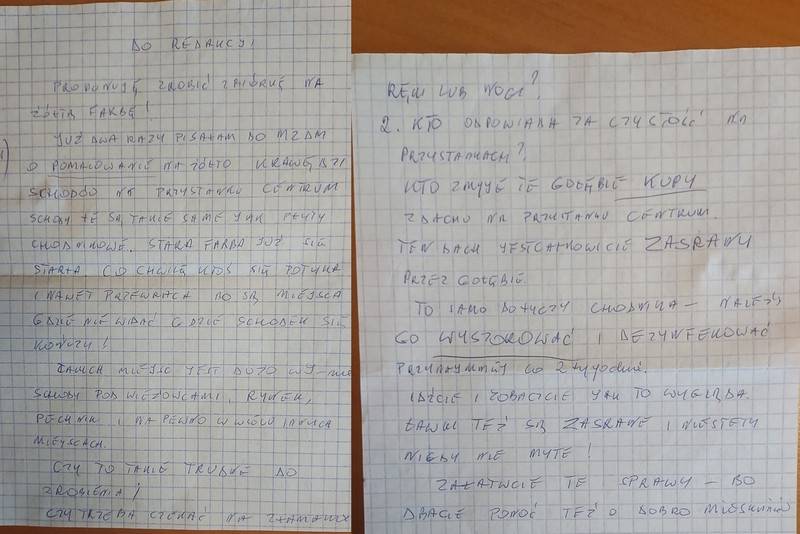 DO REDAKCJI
PROPONUJĘ ZROBIĆ ZBIÓRKĘ NA
ŻÓŁTĄ FARBĘ!
JUŻ DWA RAZY PISAŁAM DO MZDM
1) O POMALOWANIE NA ŻÓŁTO KRAWĘDZI
SCHODÓW NA PRZYSTANKU CENTRUM
SCHODY TE SĄ TAKIE SAME JAK PŁYTY
CHODNIKOWE. STARA FARBA JUŻ SIĘ
STARŁA. CO CHWILĘ KTOŚ SIĘ POTYKA
I NAWET PRZEWRACA BO SĄ MIEJSCA
GDZIE NIE WIDAĆ GDZIE SCHODEK SIĘ
KOŃCZY!
TAKICH MIEJSC JEST DUŻO
SCHODY POD WIEŻOWCAMI, RYNEK,
PECHNIK I NA PEWNO W WIELU INNYCH
MIEJSCACH.
CZY TO TAKIE TRUDNE DO
ZROBIENIA!
CZY TRZEBA CZEKAĆ NA ZŁAMANIE
RĘKI LUB NOGI?
2. KTO ODPOWIADA ZA CZYSTOŚĆ NA
PRZYSTANKACH?
KTO ZMYJE TE GOŁĘBIE KUPY
Z DACHU NA PRZYSTANKU CENTRUM.
TEN DACH JEST CAŁKOWICIE ZASRANY
PRZEZ GOŁĘBIE.
TO SAMO DOTYCZY CHODNIKA – NALEŻY
GO WYSZOROWAĆ I DEZYNFEKOWAĆ
PRZYNAJMNIEJ CO 2 tygodnie.
IDŹCIE I ZOBACZCIE JAK TO WYGLĄDA.
ŁAWKI TEŻ SĄ ZASRANE I NIESTETY
NIGDY NIE MYTE!
ZAŁATWCIE TE SPRAWY – BO
DBACIE PONOĆ TEŻ O DOBRO MIESZKAŃCÓW